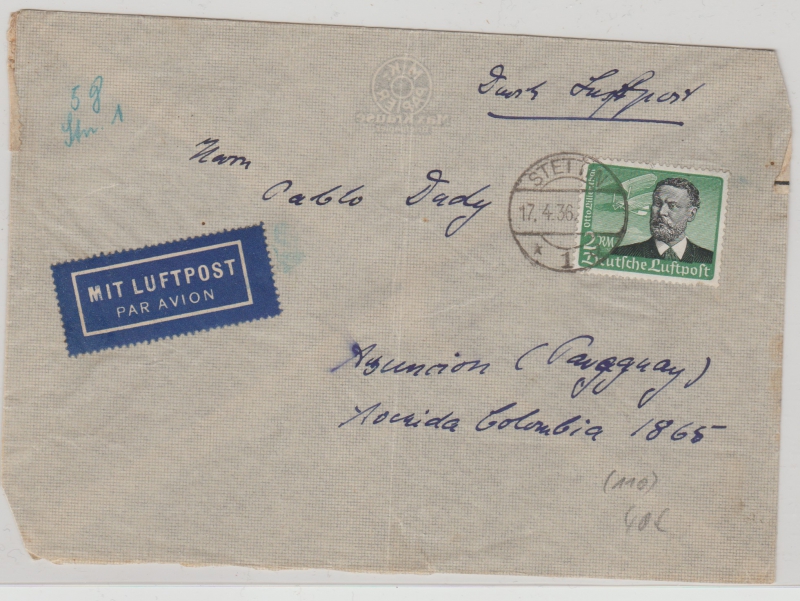 5 g
Str. 1
MIKE
PAPIER
Max Krause
Durch Luftpost
Herrn
Pablo Dady
STETTIN
17.4.36.
* 1
Otto Lilienthal
2 RM
Deutsche Luftpost
MIT LUFTPOST
PAR AVION
Asuncion (Paragguay)
Avenida Colombia 1865
(110)